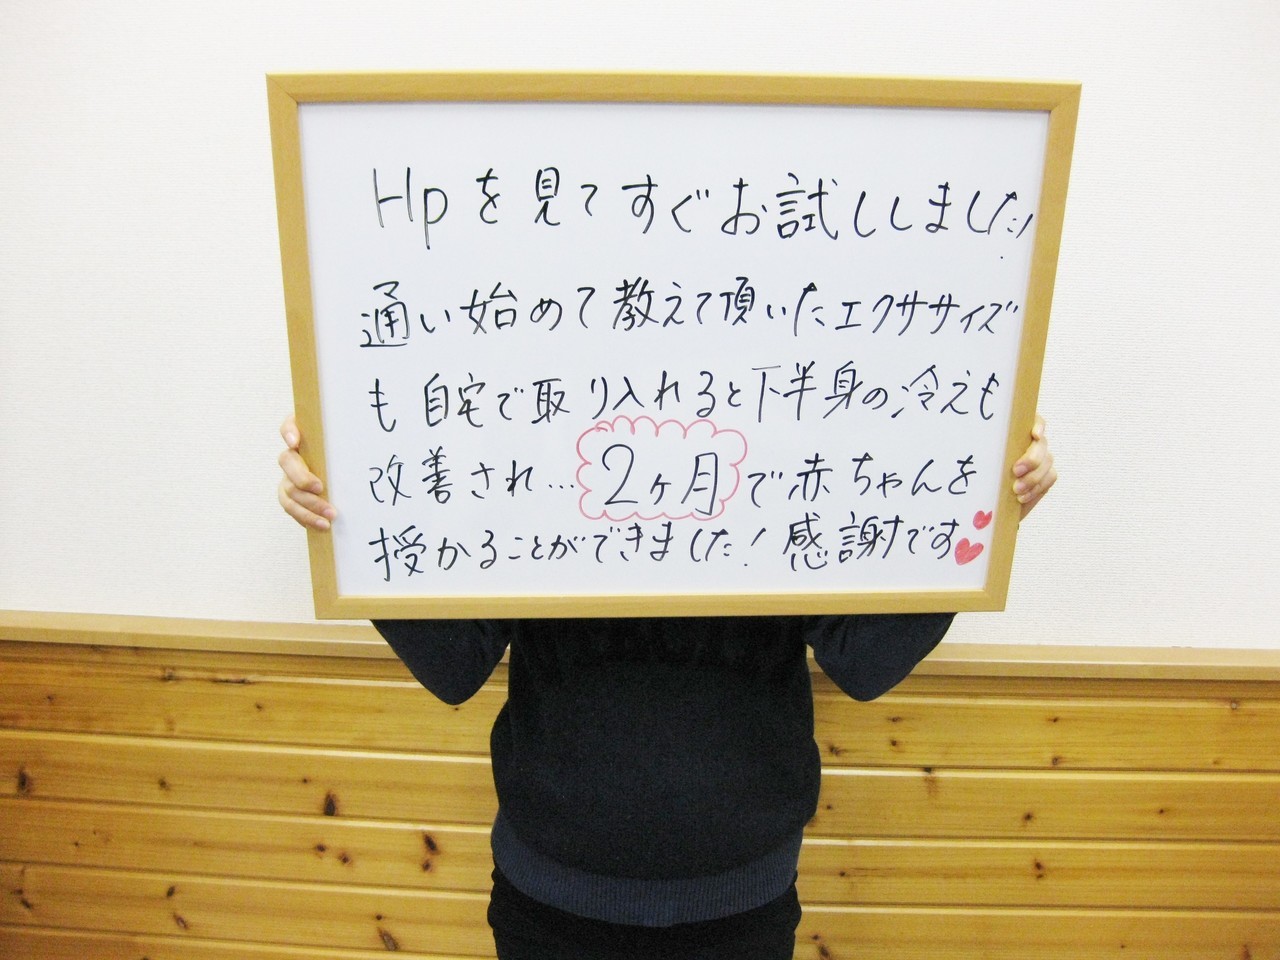 Hpを見てすぐお試ししました!
通い始めて教えて頂いたエクササイズ
も自宅で取り入れると下半身の冷えも
改善され…2ヶ月で赤ちゃんを
授かることができました!感謝です